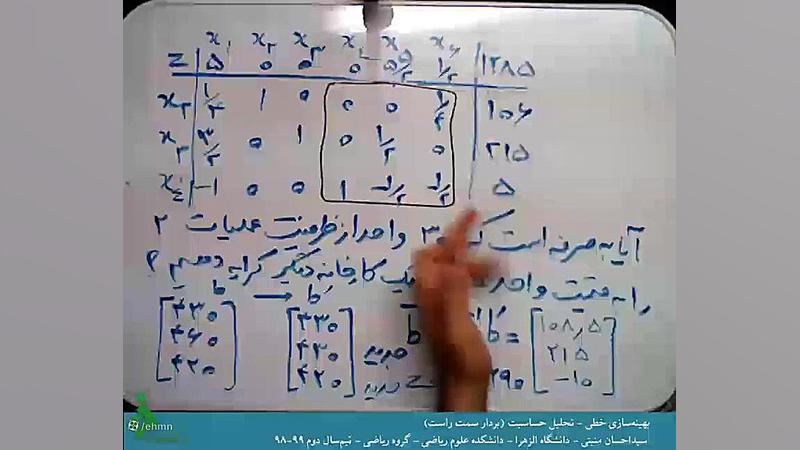 x₁ x₂ x₃ x₄ x₅ x₆
z ۵ ۰ ۰ ۰ ۵/۲ ۱/۲ ۱۲۸۵
x₂ ۱/۴ ۱ ۰ ۰ ۰ ۱/۴ ۱۰۶
x₃ ۳/۲ ۰ ۱ ۰ ۱/۲ ۰ ۲۱۵
x₄ -۱ ۰ ۰ ۱ -۱/۲ -۱/۲ ۵
آیا به صرفه است که ۳۰ واحد از ظرفیت عملیات ۲
را به قیمت واحد یک کارخانه دیگر کرایه دهیم؟
b → b'
[۴۳۰ ۴۶۰ ۴۲۰] [۴۳۰ ۴۳۰ ۴۲۰] جدید b = [۱۰۸٫۵ ۲۱۵ -۱۰]
جدید z ۲۹۰
بهینه‌سازی خطی - تحلیل حساسیت (بردار سمت راست)
سیداحسان منبتی - دانشگاه الزهرا - دانشکده علوم ریاضی - گروه ریاضی - نیم‌سال دوم ۹۹-۹۸
/ehmn